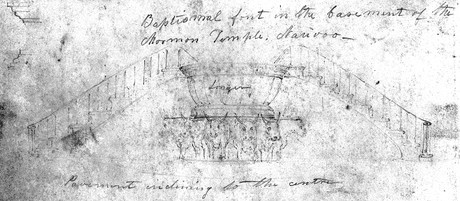 Baptismal font in the basement of the
Mormon Temple. Nauvoo
Longer
Pavement inclining to the centre